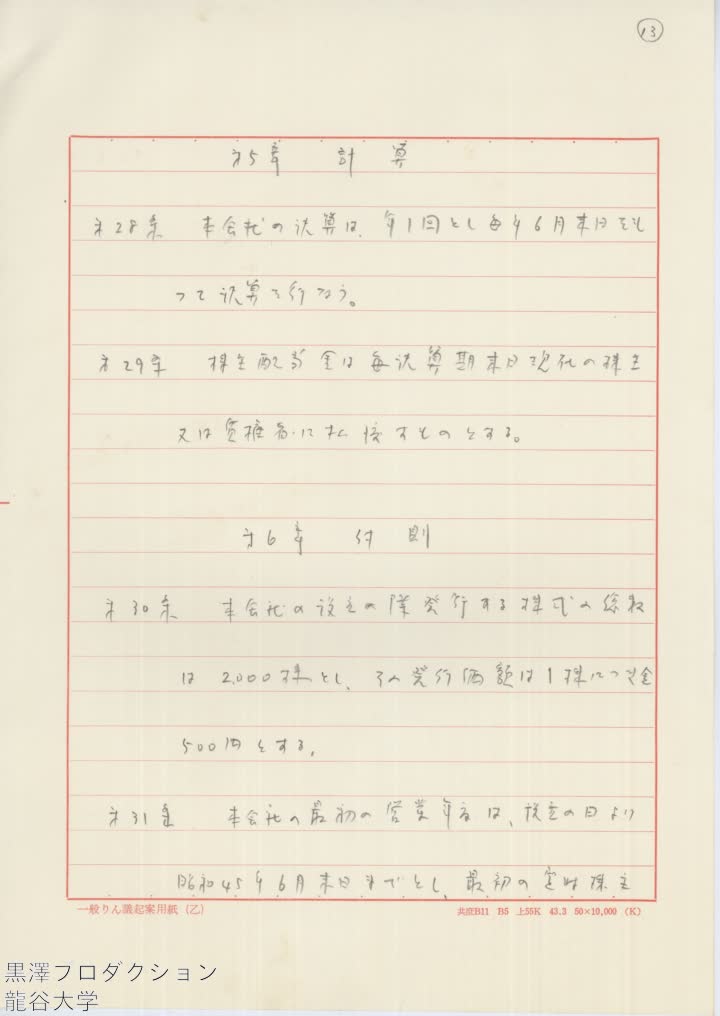 13
第5章 計算
第28条 本会社の決算は、年1回とし毎年6月末日をも
って決算を行なう。
第29条 株主配当金は毎決算期末日現在の株主
又は質権者に払渡すものとする。
第6章 付則
第30条 本会社の設立の際発行する株式の総数
は2,000株とし、その発行価額は1株につき金
500円とする。
第31条 本会社の最初の営業年度は、設立の日より
昭和45年6月末日までとし、最初の定時株主
一般りん議起案用紙(乙)
共庶B11 B5 上55K 43.3 50×10,000 (K)
黒澤プロダクション
龍谷大学